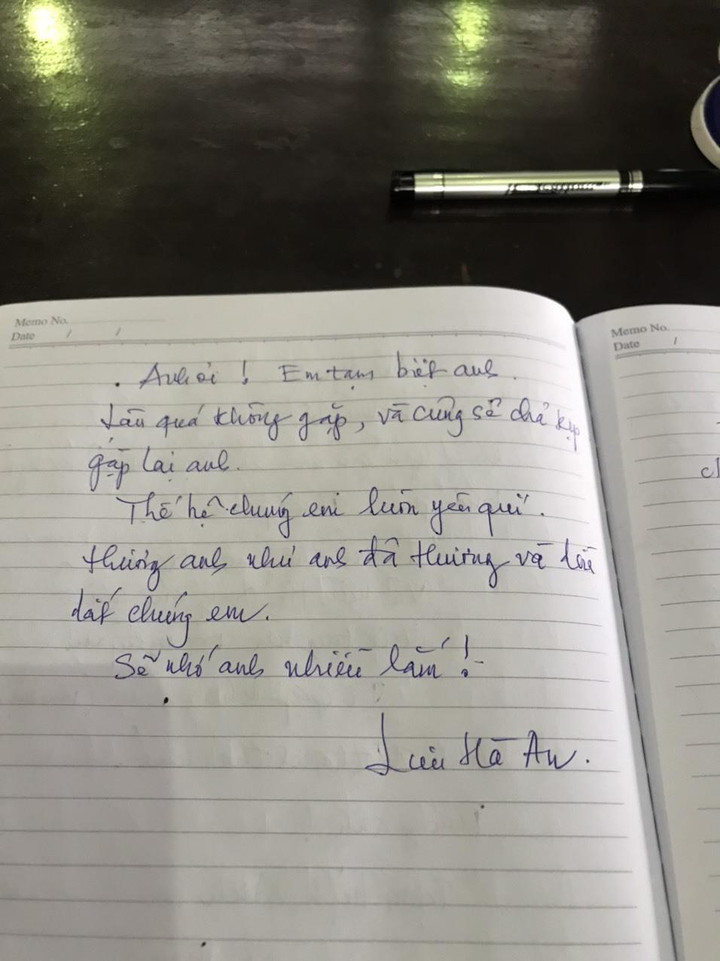 Memo No.
Date / /
. Anh ơi ! Em tạm biệt anh.
Lâu quá không gặp, và cũng sẽ chả kịp
gặp lại anh.
Thế hệ chúng em luôn yêu quí.
thương anh như anh đã thương và dìu
dắt chúng em.
Sẽ nhớ anh nhiều lắm !
Lưu Hà An.
Memo No.
Date /